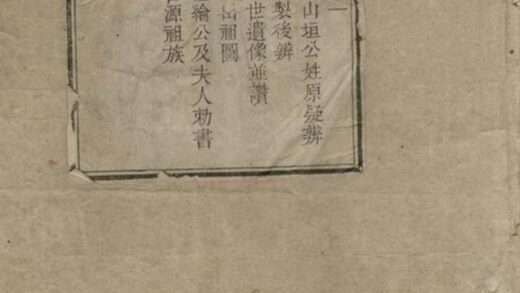 一
山垣公姓原疑辨
製後辨
世遺像並讚
岳祖圖
繪公及夫人勅書
源祖族